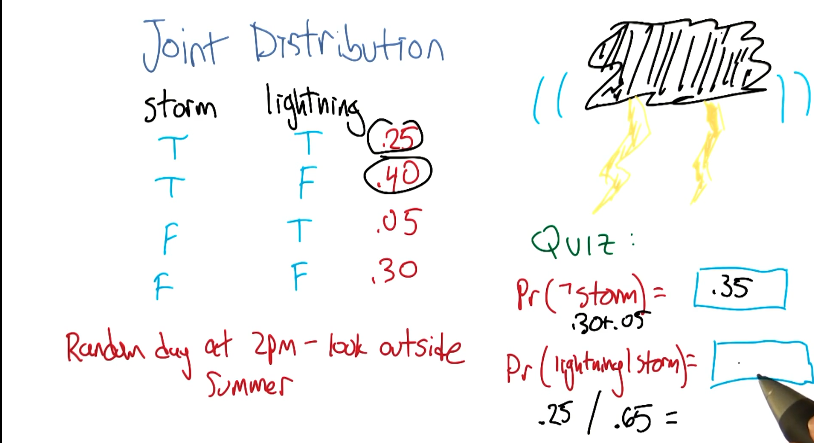 Joint Distribution
storm lightning
T T .25
T F .40
F T .05
F F .30
Random day at 2pm - look outside
Summer
QUIZ:
Pr(¬storm) = .35
.30+.05
Pr(lightning|storm)=
.25 / .65 =